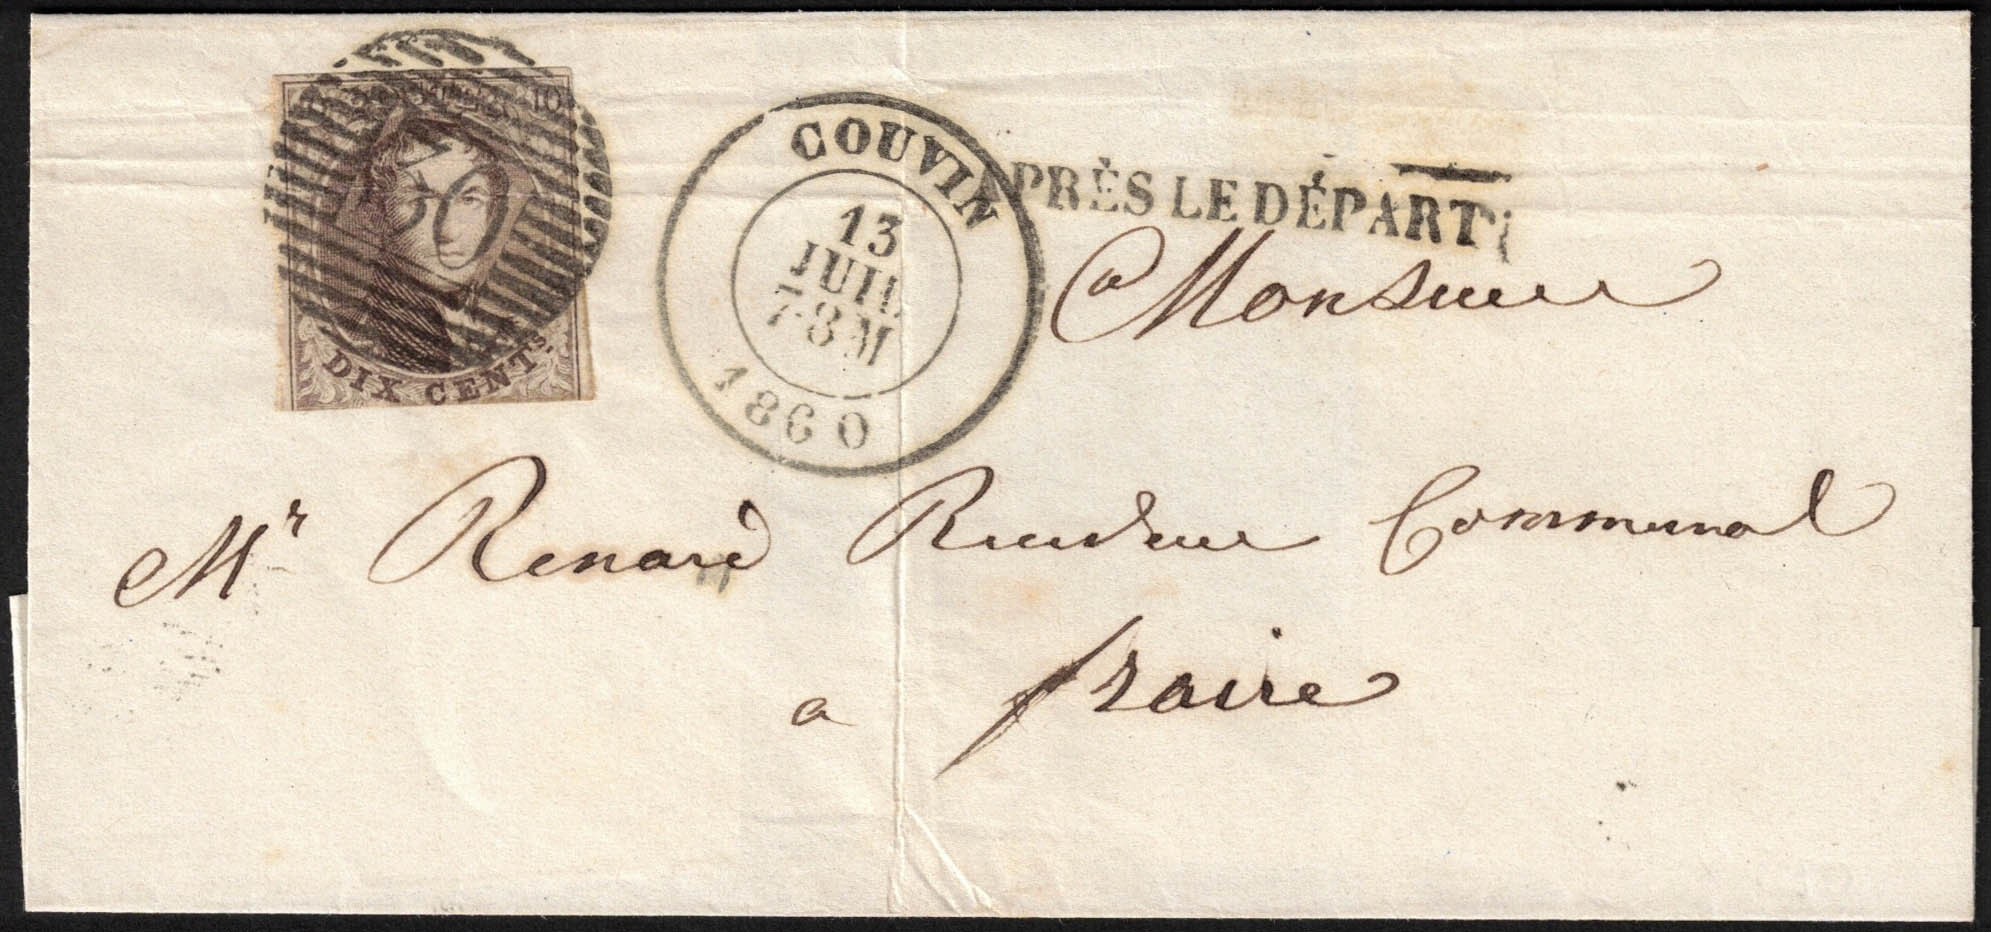 10
30
DIX CENTS.
COUVIN
13
JUIL
7-8M
1860
APRÈS LE DÉPART
a Monsieur
Mr Renard Receveur Communal
a fraire